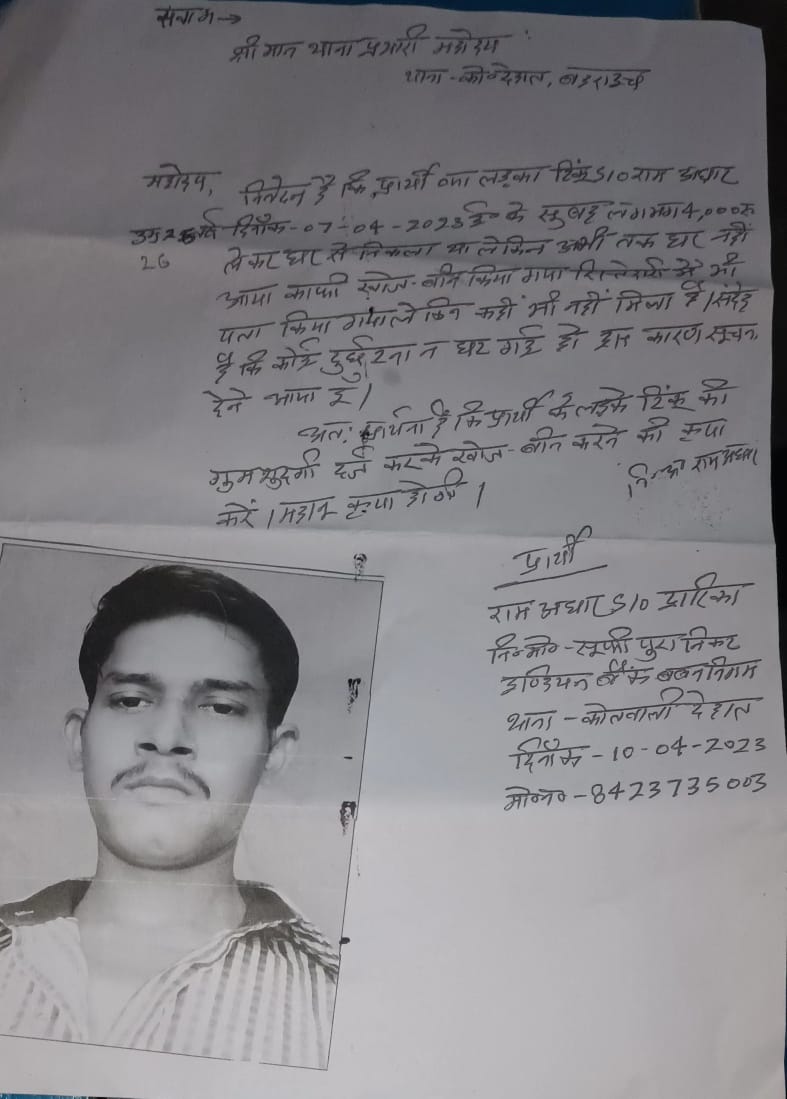 सेवा में →
श्रीमान थाना प्रभारी महोदय
थाना - को० देहात, बहराइच
महोदय,
निवेदन है कि प्रार्थी का लड़का टिंकू S/O राम अधार
उम्र 26 वर्ष दिनाँक - 07-04-2023 ई० के सुबह लगभग 4,000 रु
26 लेकर घर से निकला था लेकिन अभी तक घर नहीं
आया काफी खोज-बीन किया गया रिश्तेदारी में भी
पता किया गया लेकिन कहीं भी नहीं मिला है। संदेह
है कि कोई दुर्घटना न घट गई हो इस कारण सूचना
देने आया हूँ।
अतः प्रार्थना है कि प्रार्थी के लड़के टिंकू की
गुमशुदगी दर्ज करके खोज-बीन करने की कृपा
करें। महान कृपा होगी।
राम अधार
प्रार्थी
राम अधार S/O द्वारिका
नि० मो० - सूफी पुरा निकट
इण्डियन बैंक
थाना - कोतवाली देहात
दिनाँक - 10-04-2023
मो० न० - 8423735003